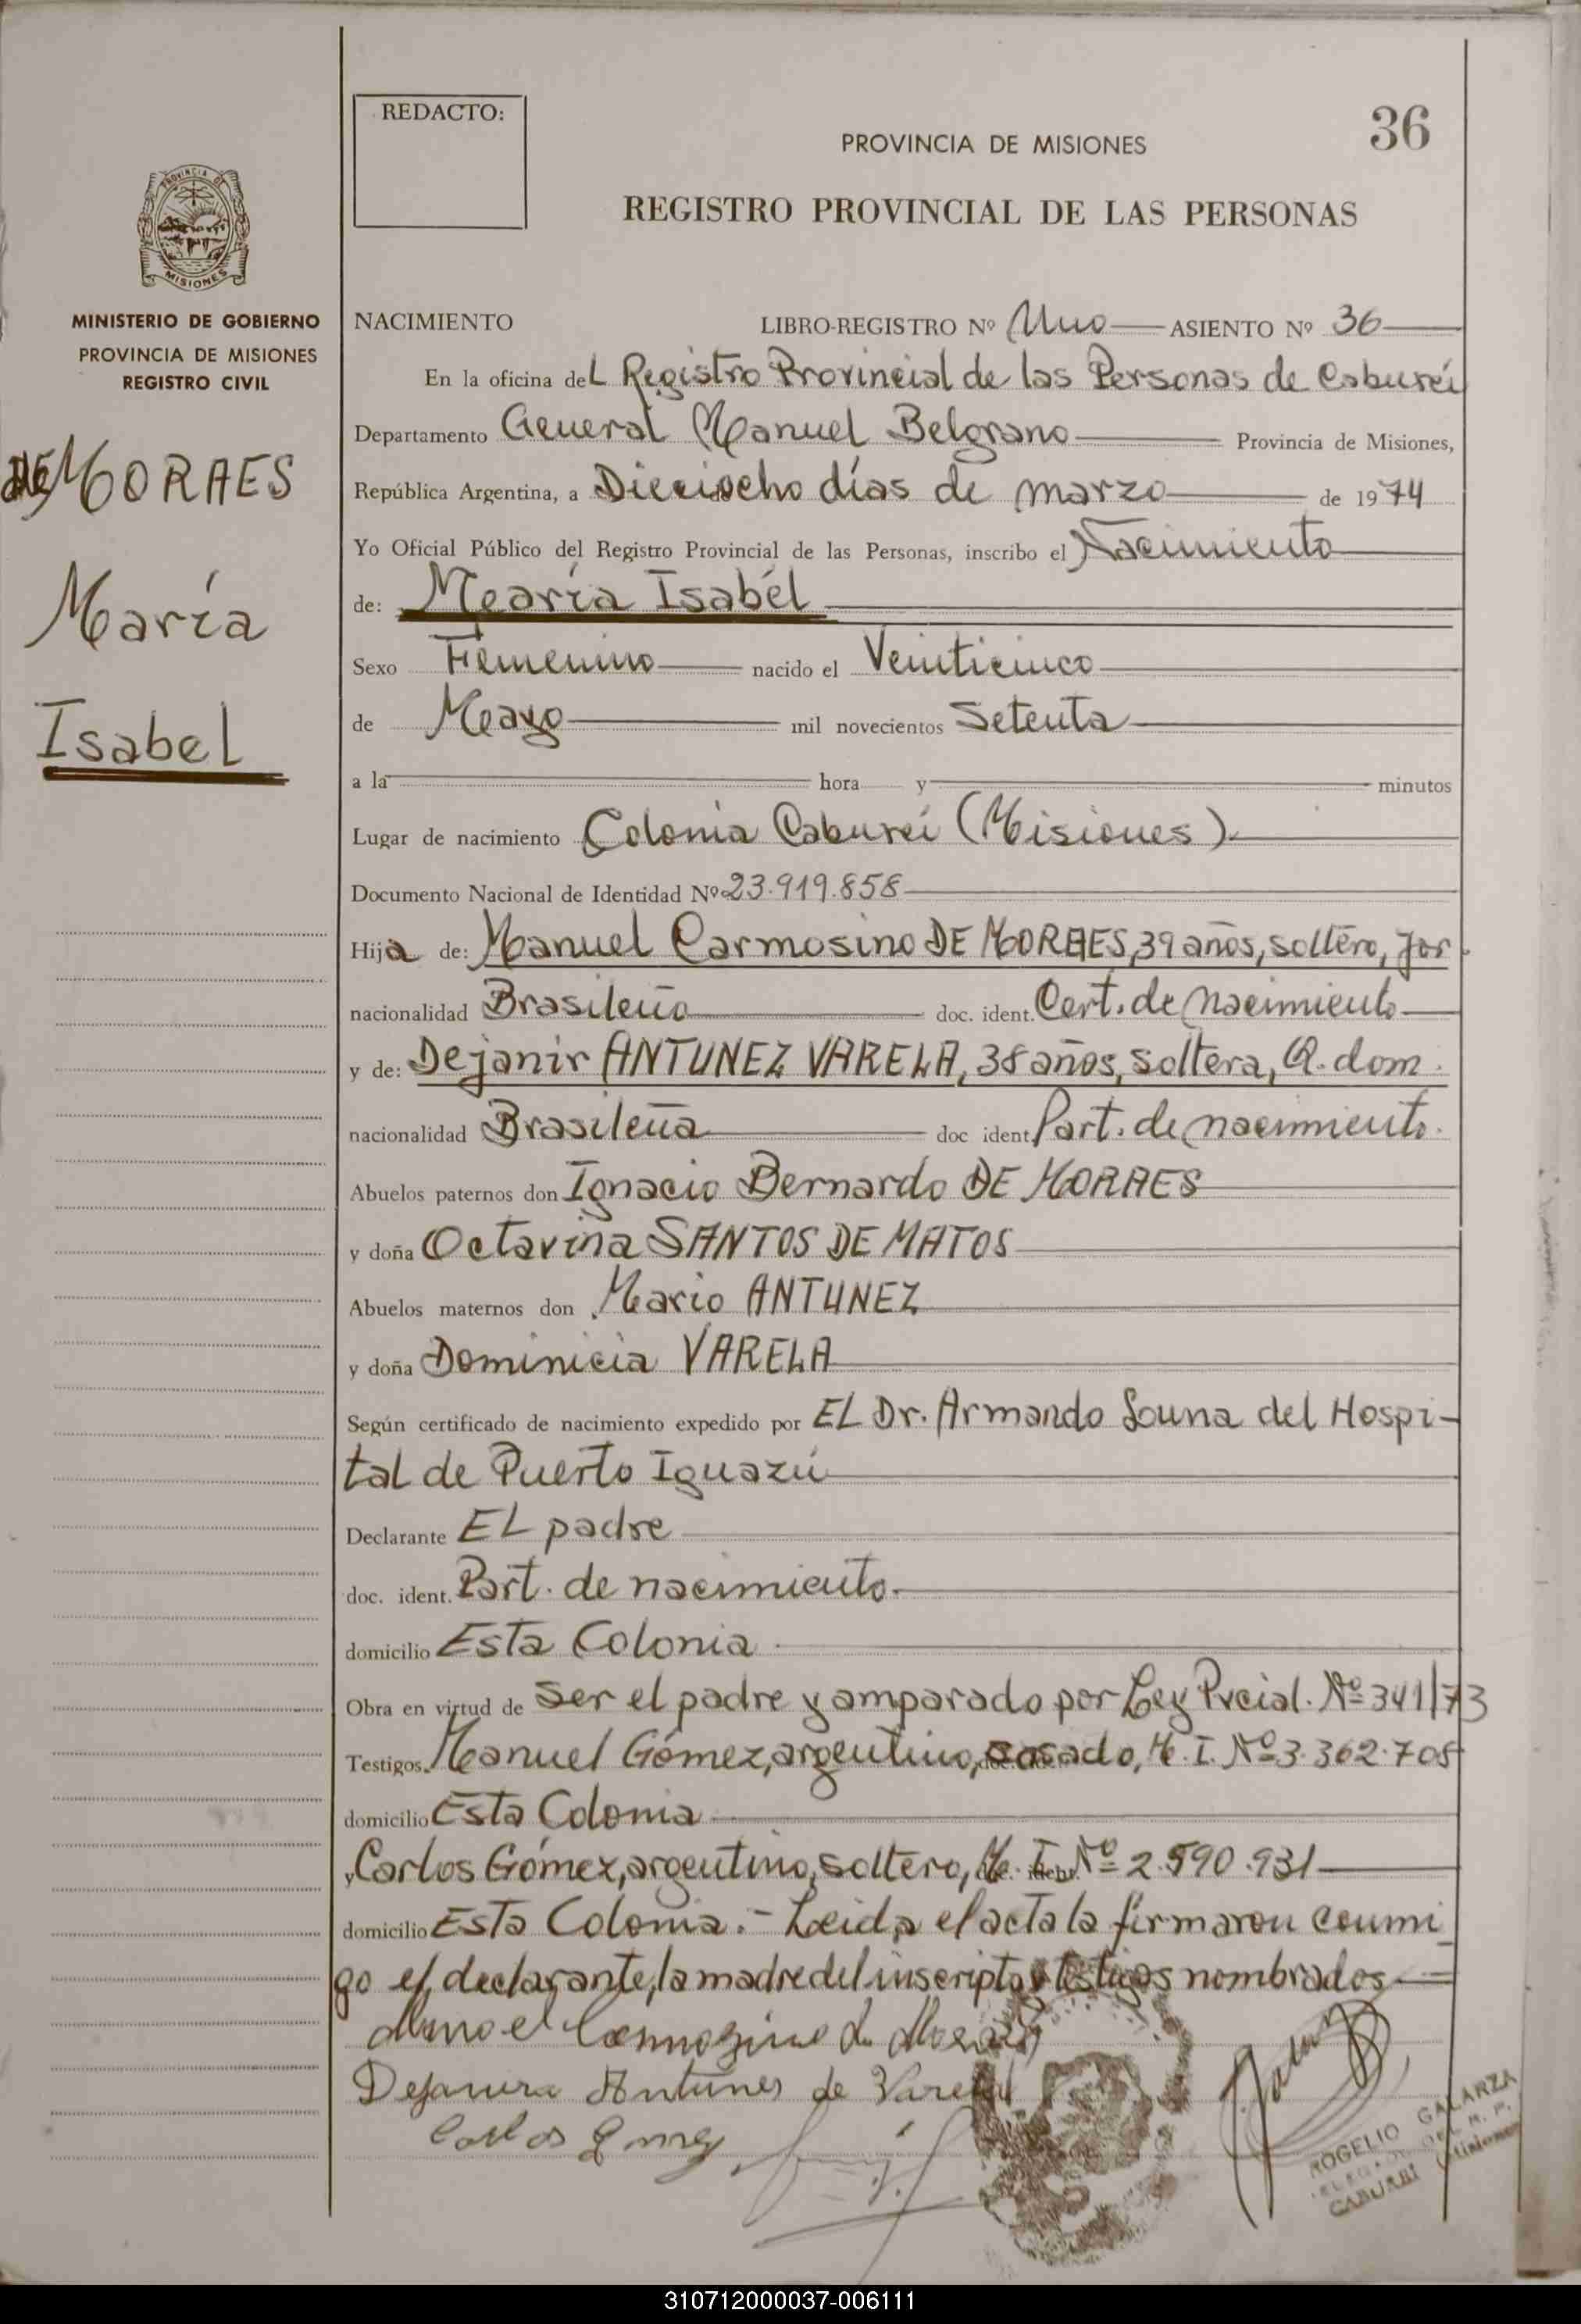 REDACTO:
36
PROVINCIA DE MISIONES
REGISTRO PROVINCIAL DE LAS PERSONAS
PROVINCIA DE
MISIONES
MINISTERIO DE GOBIERNO
PROVINCIA DE MISIONES
REGISTRO CIVIL
DE MORAES
María
Isabel
NACIMIENTO LIBRO-REGISTRO Nº Uno ASIENTO Nº 36
En la oficina del Registro Provincial de las Personas de Caburei
Departamento General Manuel Belgrano Provincia de Misiones,
República Argentina, a Dieciocho días de marzo de 1974
Yo Oficial Público del Registro Provincial de las Personas, inscribo el Nacimiento
de: María Isabél
Sexo Femenino nacido el Veinticinco
de Mayo mil novecientos Setenta
a la hora y minutos
Lugar de nacimiento Colonia Caburei (Misiones).
Documento Nacional de Identidad Nº 23.919.858
Hija de: Manuel Carmosino DE MORAES, 39 años, soltero, Jor.
nacionalidad Brasileño doc. ident. Cert. de nacimiento
y de: Dejanir ANTUNEZ VARELA, 38 años, soltera, Q. dom.
nacionalidad Brasileña doc ident. Part. de nacimiento.
Abuelos paternos don Ignacio Bernardo DE MORAES
y doña Octavina SANTOS DE MATOS
Abuelos maternos don Mario ANTUNEZ
y doña Dominicia VARELA
Según certificado de nacimiento expedido por EL Dr. Armando Souna del Hospi-
tal de Puerto Iguazú
Declarante EL padre
doc. ident. Part. de nacimiento.
domicilio Esta Colonia
Obra en virtud de ser el padre y amparado por Ley Prcial. Nº 341/73
Testigos Manuel Gómez, argentino, casado, M. I. Nº 3.362.705
domicilio Esta Colonia
y Carlos Gómez, argentino, soltero, M. I. Nº 2.590.931
domicilio Esta Colonia.- Leida el acta la firmaron conmi
go el declarante, la madre del inscripto y testigos nombrados
Dejanira Antunes de Varela
Carlos Gomez
ROGELIO GALARZA
CABUREI Misiones
310712000037-006111